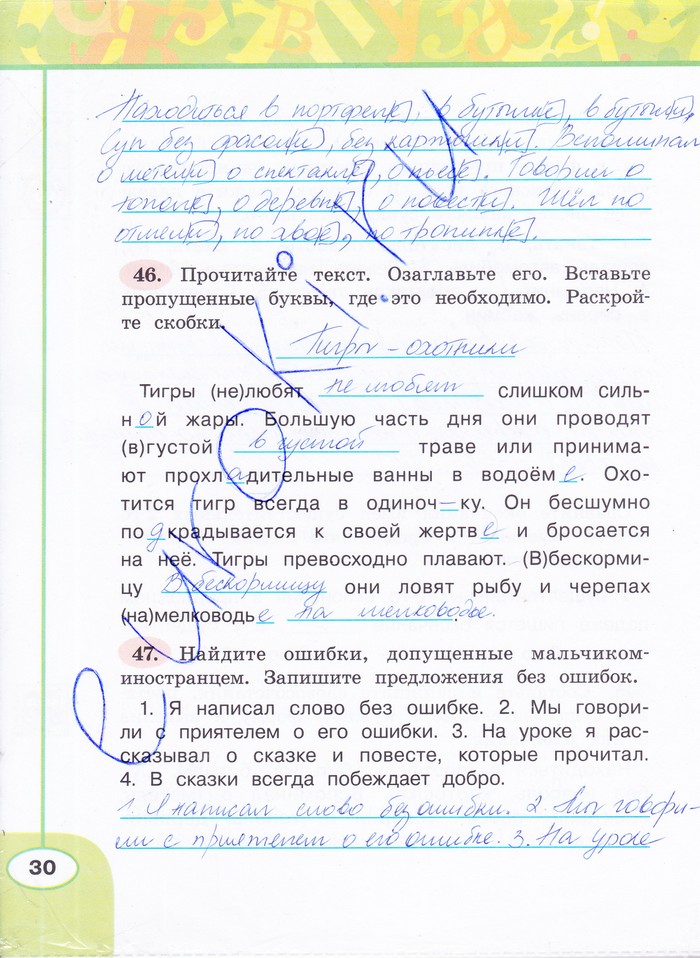 Находиться в портфел[е], в бутылк[е], в бутылк[е],
Суп без фасол[и], без картошк[и]. Вспоминал
о метел[и] о спектакл[е], о пьес[е]. Говорил о
топол[е], о деревн[е], о повест[и]. Шёл по
отмел[и], по хво[е], по тропинк[е].
46. Прочитайте текст. Озаглавьте его. Вставьте
пропущенные буквы, где это необходимо. Раскрой-
те скобки.
Тигры - охотники
Тигры (не)любят не любят слишком силь-
н о й жары. Большую часть дня они проводят
(в)густой в густой траве или принима-
ют прохл а дительные ванны в водоём е . Охо-
тится тигр всегда в одиноч – ку. Он бесшумно
по д крадывается к своей жертв е и бросается
на неё. Тигры превосходно плавают. (В)бескорми-
цу В бескормицу они ловят рыбу и черепах
(на)мелководь е на мелководье.
47. Найдите ошибки, допущенные мальчиком-
иностранцем. Запишите предложения без ошибок.
1. Я написал слово без ошибке. 2. Мы говори-
ли с приятелем о его ошибки. 3. На уроке я рас-
сказывал о сказке и повесте, которые прочитал.
4. В сказки всегда побеждает добро.
1. Я написал слово без ошибки. 2. Мы говори-
ли с приятелем о его ошибке. 3. На уроке
30